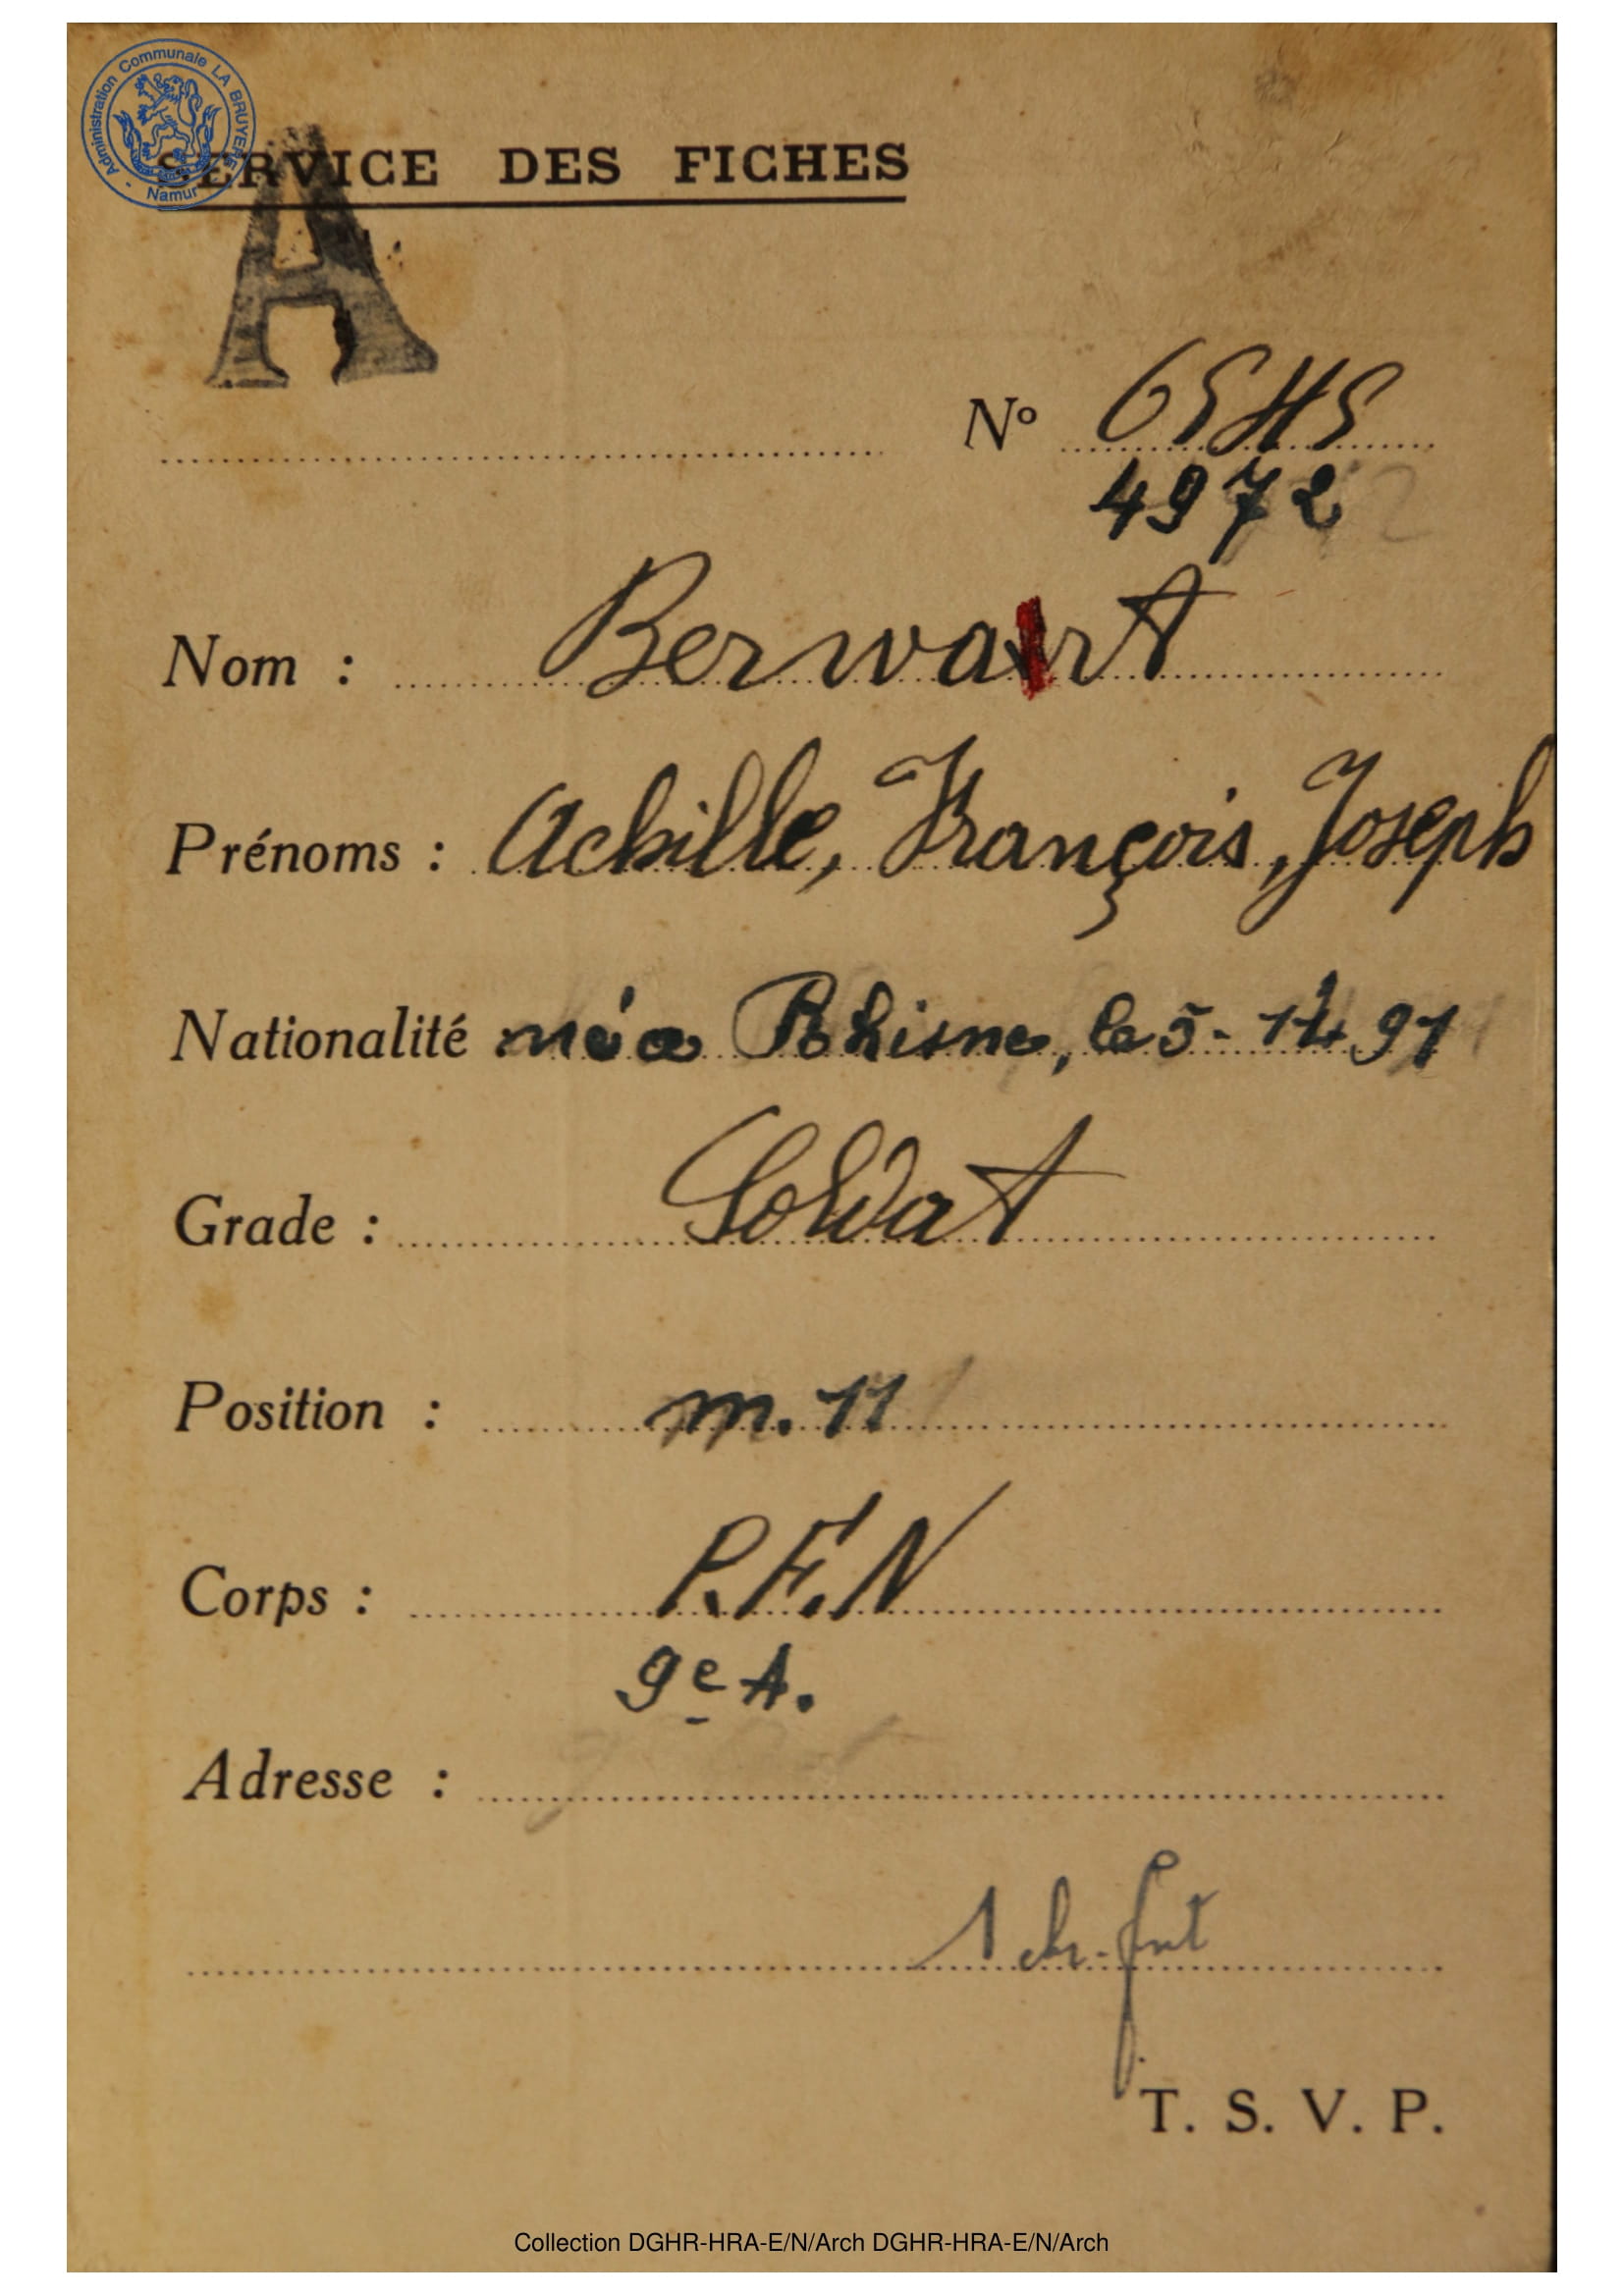 Administration Communale LA BRUYERE - Namur
SERVICE DES FICHES
A
N° 65H5
4972
Nom : Berwart
Prénoms : Achille, François, Joseph
Nationalité né à Rhisne, le 5- 91
Grade : Soldat
Position : m. 11
Corps : P.F.N
9e A.
Adresse :
1 ch. fnt
T. S. V. P.
Collection DGHR-HRA-E/N/Arch DGHR-HRA-E/N/Arch